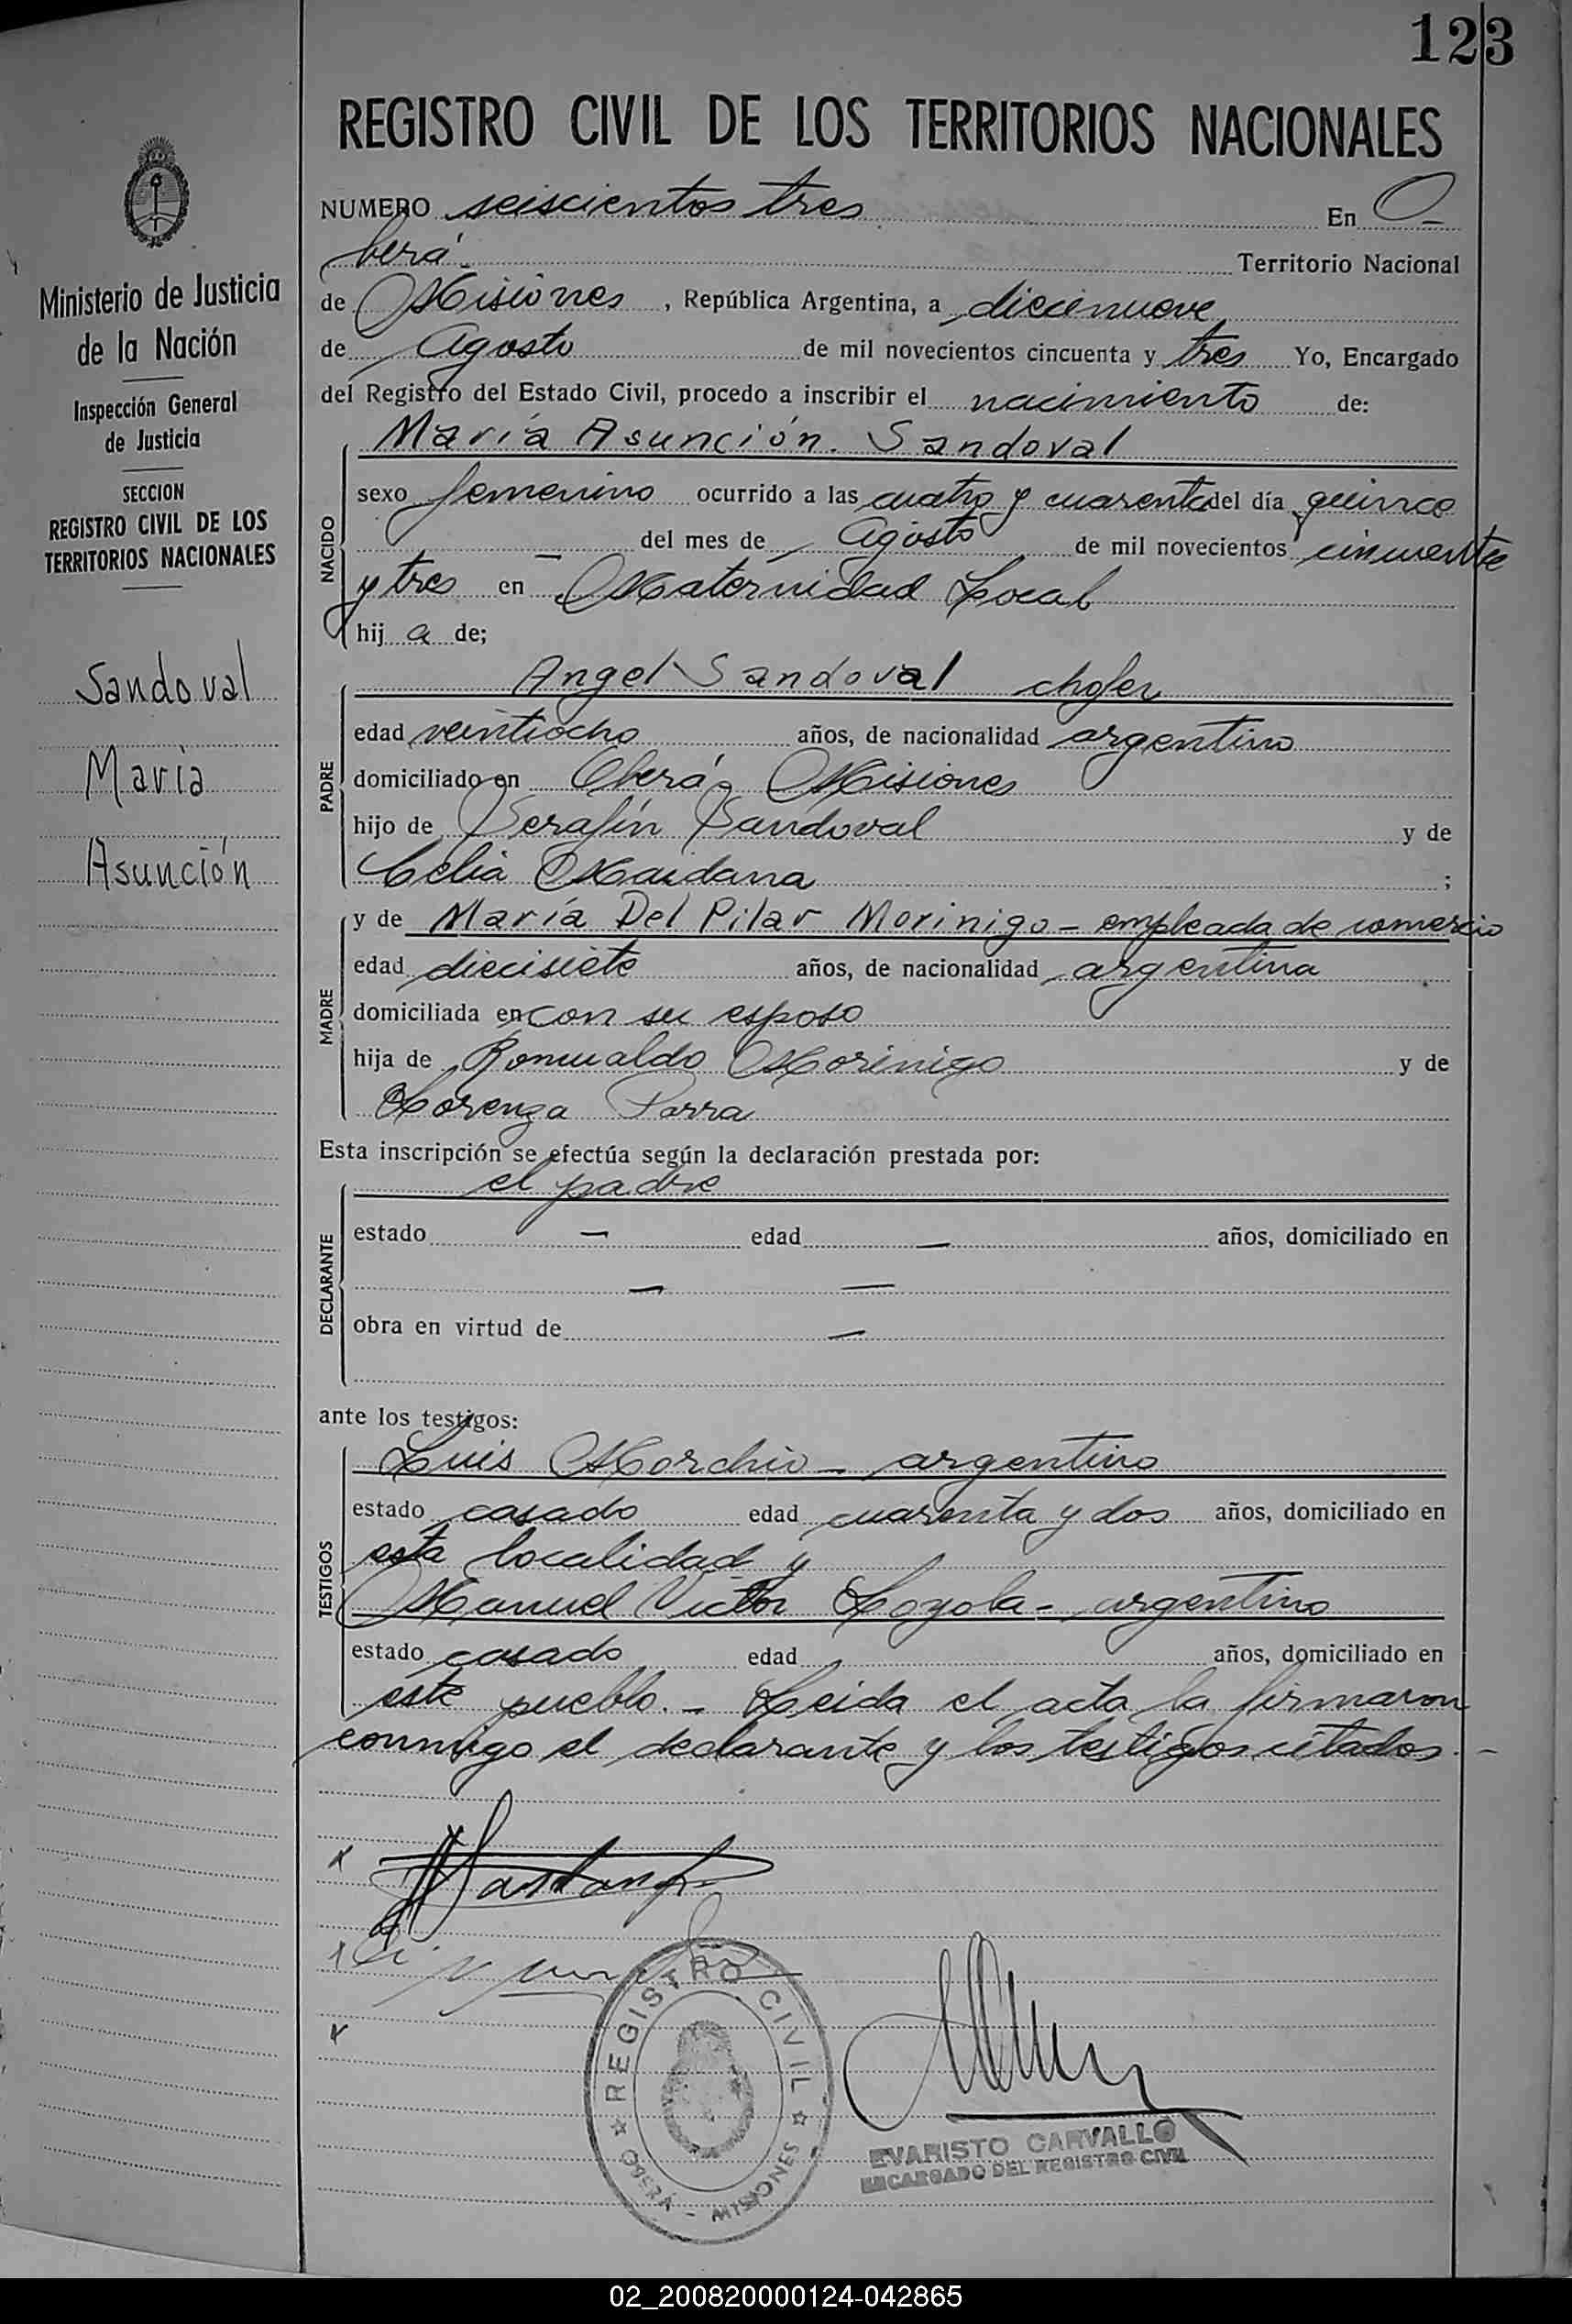 123
REGISTRO CIVIL DE LOS TERRITORIOS NACIONALES
Ministerio de Justicia
de la Nación
Inspección General
de Justicia
SECCION
REGISTRO CIVIL DE LOS
TERRITORIOS NACIONALES
Sandoval
María
Asunción
NUMERO seiscientos tres En O-
berá.- Territorio Nacional
de Misiones, República Argentina, a diecinueve
de Agosto de mil novecientos cincuenta y tres Yo, Encargado
del Registro del Estado Civil, procedo a inscribir el nacimiento de:
NACIDO
María Asunción. Sandoval
sexo femenino ocurrido a las cuatro y cuarenta del día quince
— del mes de Agosto de mil novecientos cincuenta
y tres en Maternidad Local
hij a de;
PADRE
Angel Sandoval chofer
edad veintiocho años, de nacionalidad argentino
domiciliado en Oberá - Misiones
hijo de Serafín Sandoval y de
Celia Maidana ;
MADRE
y de María Del Pilar Morinigo - empleada de comercio
edad diecisiete años, de nacionalidad argentina
domiciliada en con su esposo
hija de Romualdo Morinigo y de
Lorenza Parra
Esta inscripción se efectúa según la declaración prestada por:
DECLARANTE
el padre
estado — edad — años, domiciliado en
— —
obra en virtud de —
ante los testigos:
TESTIGOS
Luis Morchio - argentino
estado casado edad cuarenta y dos años, domiciliado en
esta localidad y
Manuel Victor Loyola - argentino
estado casado edad años, domiciliado en
este pueblo. - Leida el acta la firmaron
conmigo el declarante y los testigos citados. -
REGISTRO CIVIL
OBERÁ - MISIONES
EVARISTO CARVALLO
ENCARGADO DEL REGISTRO CIVIL
02_200820000124-042865